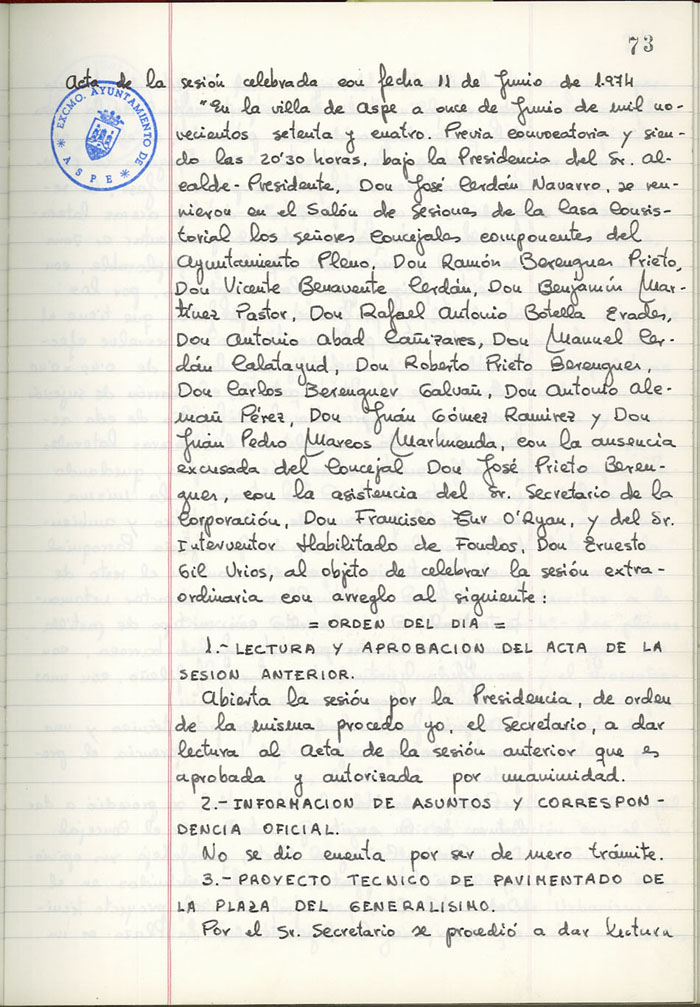 73
Acta de la sesión celebrada con fecha 11 de Junio de 1.974
EXCMO. AYUNTAMIENTO DE
* ASPE *
"En la villa de Aspe a once de Junio de mil no-
vecientos setenta y cuatro. Previa convocatoria y sien-
do las 20'30 horas, bajo la Presidencia del Sr. Al-
calde-Presidente, Don José Cerdán Navarro, se reu-
nieron en el Salón de Sesiones de la Casa Consis-
torial los señores Concejales componentes del
Ayuntamiento Pleno, Don Ramón Berenguer Prieto,
Don Vicente Benavente Cerdán, Don Benjamín Mar-
tínez Pastor, Don Rafael Antonio Botella Erades,
Don Antonio Abad Cañizares, Don Manuel Cer-
dán Calatayud, Don Roberto Prieto Berenguer,
Don Carlos Berenguer Galvañ, Don Antonio Ale-
mañ Pérez, Don Juán Gómez Ramirez y Don
Juán Pedro Marcos Marhuenda, con la ausencia
excusada del Concejal Don José Prieto Beren-
guer, con la asistencia del Sr. Secretario de la
Corporación, Don Francisco Tur O'Ryan, y del Sr.
Interventor Habilitado de Fondos, Don Ernesto
Gil Urios, al objeto de celebrar la sesión extra-
ordinaria con arreglo al siguiente:
= ORDEN DEL DIA =
1.- LECTURA Y APROBACION DEL ACTA DE LA
SESION ANTERIOR.
Abierta la sesión por la Presidencia, de orden
de la misma procedo yo, el Secretario, a dar
lectura al Acta de la sesión anterior que es
aprobada y autorizada por unanimidad.
2.- INFORMACION DE ASUNTOS Y CORRESPON-
DENCIA OFICIAL.
No se dio cuenta por ser de mero trámite.
3.- PROYECTO TECNICO DE PAVIMENTADO DE
LA PLAZA DEL GENERALISIMO.
Por el Sr. Secretario se procedió a dar lectura